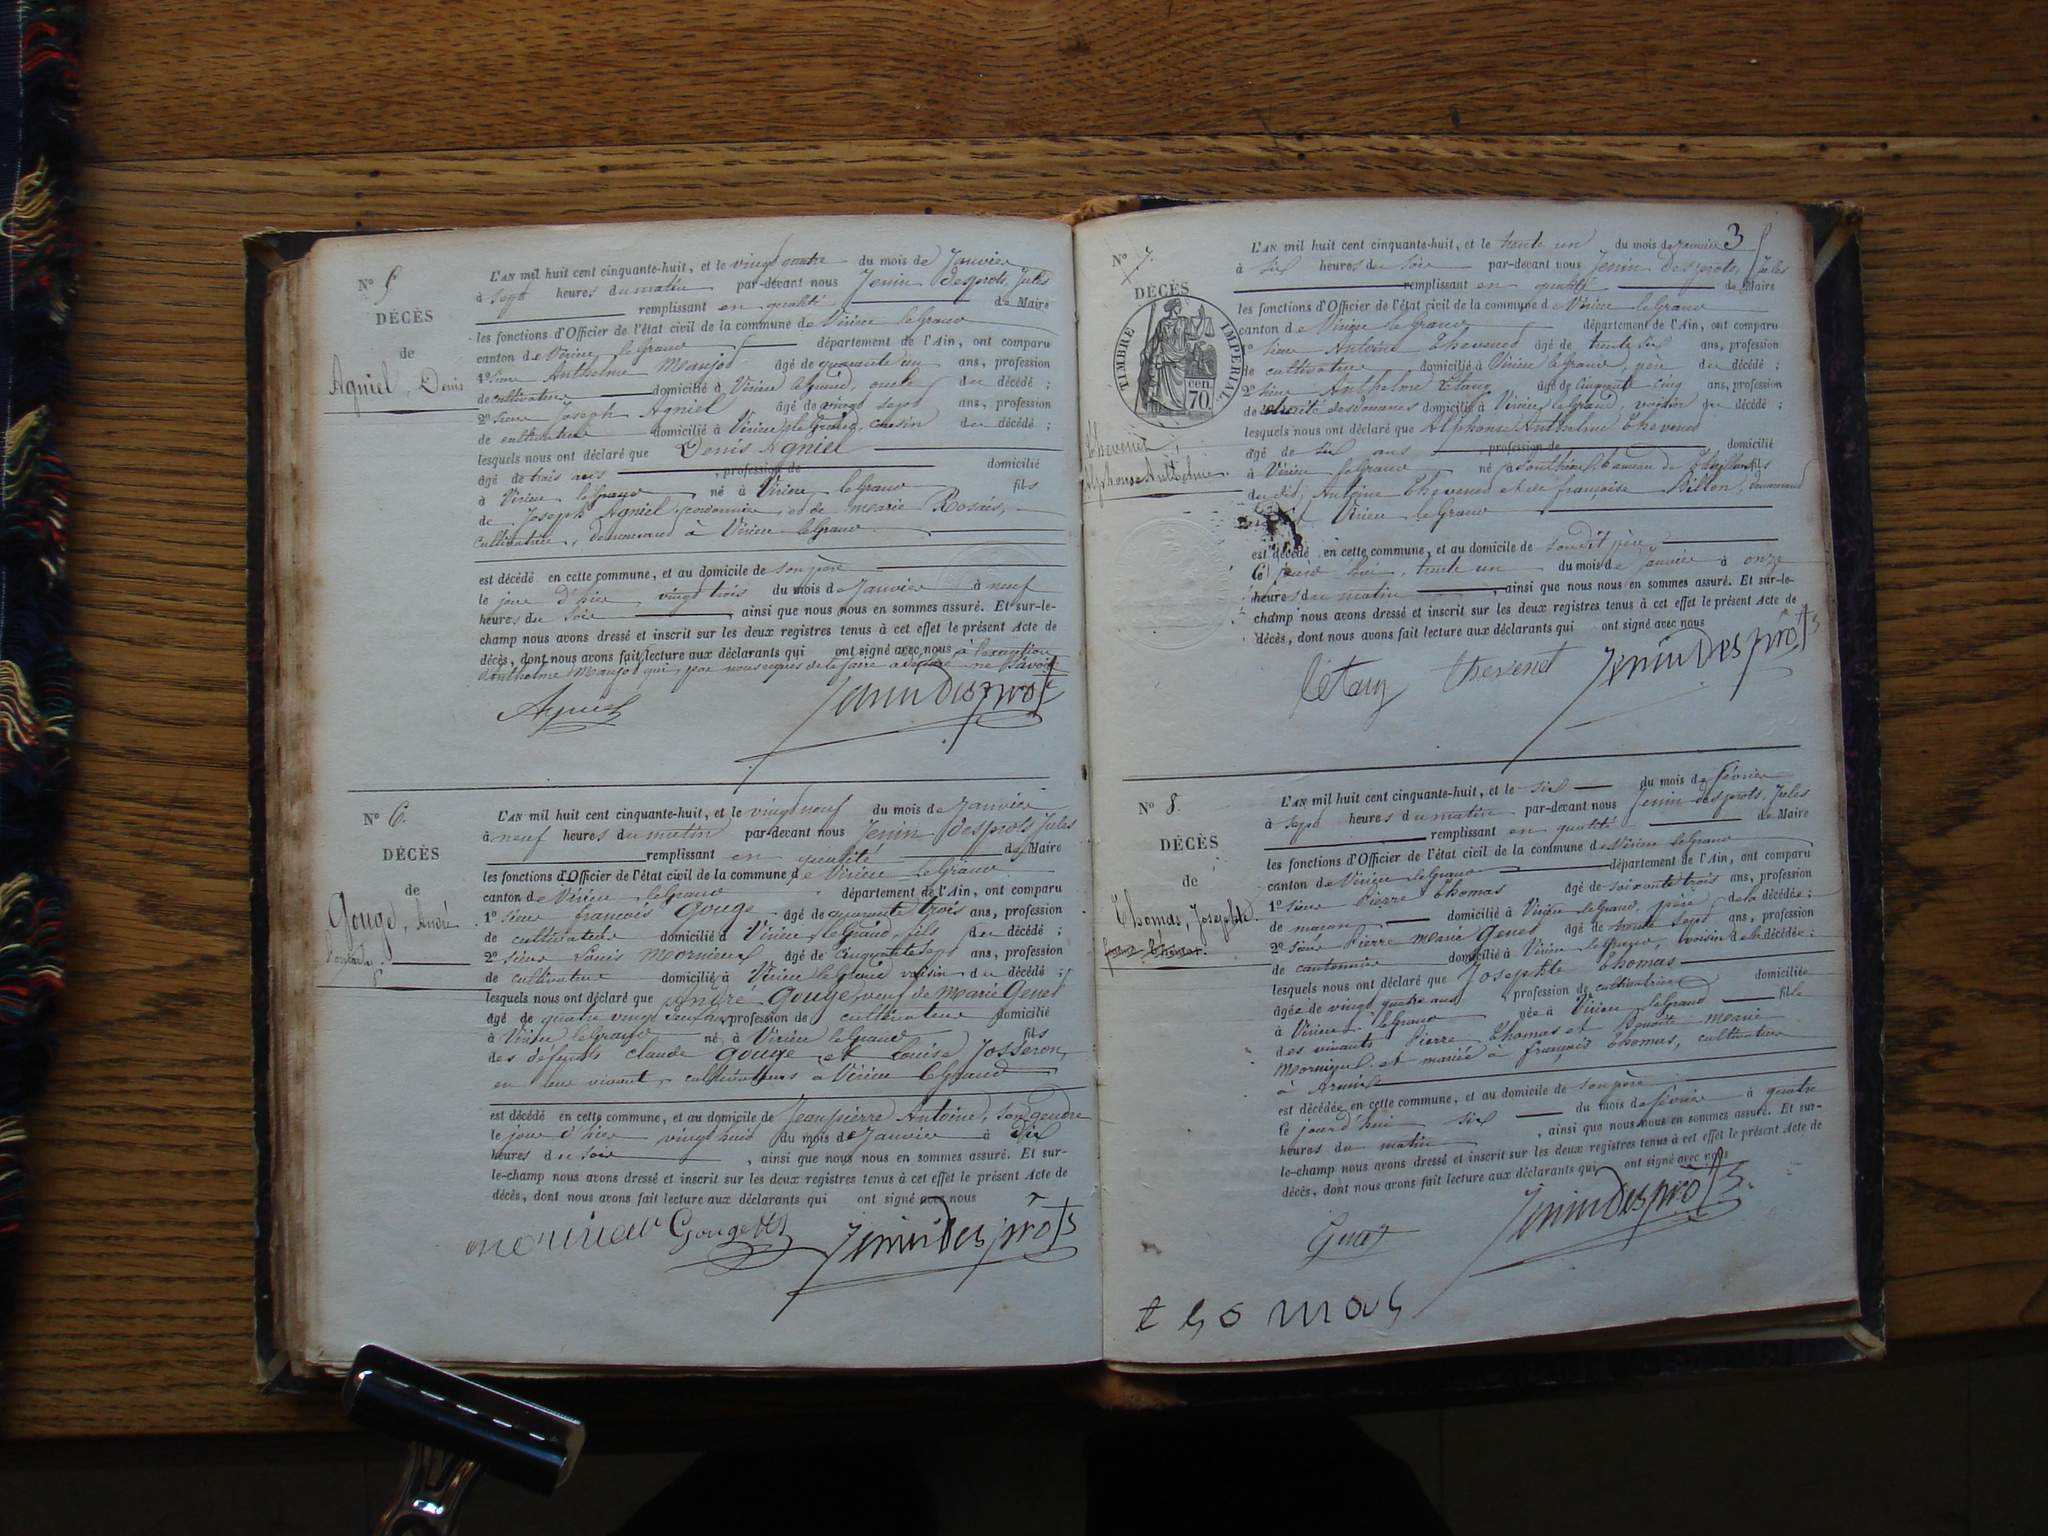 N° 5
DÉCÈS
de
Agniel, Denis
L'AN mil huit cent cinquante-huit, et le vingt quatre du mois de Janvier
à sept heures du matin par-devant nous Jenin Desprots, Jules
remplissant en qualité de Maire
les fonctions d'Officier de l'état civil de la commune de Virieu le Grand
canton de Virieu le Grand département de l'Ain, ont comparu
1° sieur Anthelme Maujot âgé de quarante un ans, profession
de cultivateur domicilié à Virieu le Grand, oncle du décédé ;
2° sieur Joseph Agniel âgé de vingt sept ans, profession
de cultivateur domicilié à Virieu le Grand, cousin du décédé ;
lesquels nous ont déclaré que Denis Agniel
âgé de trois ans , profession de domicilié
à Virieu le Grand né à Virieu le Grand fils
de Joseph Agniel, cordonnier, et de Marie Rosais,
cultivatrice, demeurant à Virieu le Grand
est décédé en cette commune, et au domicile de son père
le jour d'hier, vingt trois du mois de Janvier à neuf
heures du soir , ainsi que nous nous en sommes assuré. Et sur-le-
champ nous avons dressé et inscrit sur les deux registres tenus à cet effet le présent Acte de
décès, dont nous avons fait lecture aux déclarants qui ont signé avec nous à l'exception
d'Anthelme Maujot qui, par nous requis de le faire a déclaré ne savoir
Agniel JeninDesprots
N° 6.
DÉCÈS
de
Gouge, André
L'AN mil huit cent cinquante-huit, et le vingt neuf du mois de Janvier
à neuf heures du matin par-devant nous Jenin Desprots Jules
remplissant en qualité de Maire
les fonctions d'Officier de l'état civil de la commune de Virieu le Grand
canton de Virieu le Grand département de l'Ain, ont comparu
1° sieur françois Gouge âgé de quarante trois ans, profession
de cultivateur domicilié à Virieu le Grand, fils du décédé ;
2° sieur Louis Mornieux âgé de cinquante sept ans, profession
de cultivateur domicilié à Virieu le Grand voisin du décédé ;
lesquels nous ont déclaré que André Gouge, veuf de Marie Genet
âgé de quatre vingt ans, profession de cultivateur domicilié
à Virieu le Grand né à Virieu le Grand fils
des défunts Claude Gouge et Louise Josseron,
en leur vivant, cultivateurs à Virieu le Grand
est décédé en cette commune, et au domicile de Jean pierre Antoine, son gendre
le jour d'hier vingt huit du mois de Janvier à dix
heures du soir , ainsi que nous nous en sommes assuré. Et sur-
le-champ nous avons dressé et inscrit sur les deux registres tenus à cet effet le présent Acte de
décès, dont nous avons fait lecture aux déclarants qui ont signé avec nous
mornieux Gouge JeninDesprots
3
N° 7.
DÉCÈS
TIMBRE IMPERIAL
70 cen.
Thevenet
Alphonse Anthelme
L'AN mil huit cent cinquante-huit, et le trente un du mois de Janvier
à six heures du soir par-devant nous Jenin Desprots, Jules
remplissant en qualité de Maire
les fonctions d'Officier de l'état civil de la commune de Virieu le Grand
canton de Virieu le Grand département de l'Ain, ont comparu
1° sieur Antoine Thevenet âgé de trente six ans, profession
de cultivateur domicilié à Virieu le Grand, père du décédé ;
2° sieur Anthelme Létang âgé de cinquante cinq ans, profession
de retraité des Douanes domicilié à Virieu le Grand, voisin du décédé ;
lesquels nous ont déclaré que Alphonse Anthelme Thevenet
âgé de six ans , profession de domicilié
à Virieu le Grand né à hameau de fils
du dit, Antoine Thevenet et de françoise Billon, demeurant
à Virieu le Grand
est décédé en cette commune, et au domicile de son dit père
Ce jourd'hui, trente un du mois de Janvier à onze
heures du matin , ainsi que nous nous en sommes assuré. Et sur-le-
champ nous avons dressé et inscrit sur les deux registres tenus à cet effet le présent Acte de
décès, dont nous avons fait lecture aux déclarants qui ont signé avec nous
létang thevenet JeninDesprôts
N° 8.
DÉCÈS
de
Thomas, Josephte
L'AN mil huit cent cinquante-huit, et le six du mois de février
à sept heures du matin par-devant nous Jenin Desprots, Jules
remplissant en qualité de Maire
les fonctions d'Officier de l'état civil de la commune de Virieu le Grand
canton de Virieu le Grand département de l'Ain, ont comparu
1° sieur Pierre Thomas âgé de soixante trois ans, profession
de maçon domicilié à Virieu le Grand, père de la décédée ;
2° sieur Pierre Marie Genet âgé de trente sept ans, profession
de cantonnier domicilié à Virieu le Grand, voisin de la décédée ;
lesquels nous ont déclaré que Josephte Thomas
âgée de vingt quatre ans , profession de cultivatrice domiciliée
à Virieu le Grand née à Virieu le Grand fille
des vivants Pierre Thomas et Benoite Marie
et mariée à françois Thomas, cultivateur
à
est décédée en cette commune, et au domicile de son père
le jourd'hui six du mois de février à quatre
heures du matin , ainsi que nous nous en sommes assuré. Et sur-
le-champ nous avons dressé et inscrit sur les deux registres tenus à cet effet le présent Acte de
décès, dont nous avons fait lecture aux déclarants qui ont signé avec nous
Genet JeninDesprôts
thomas